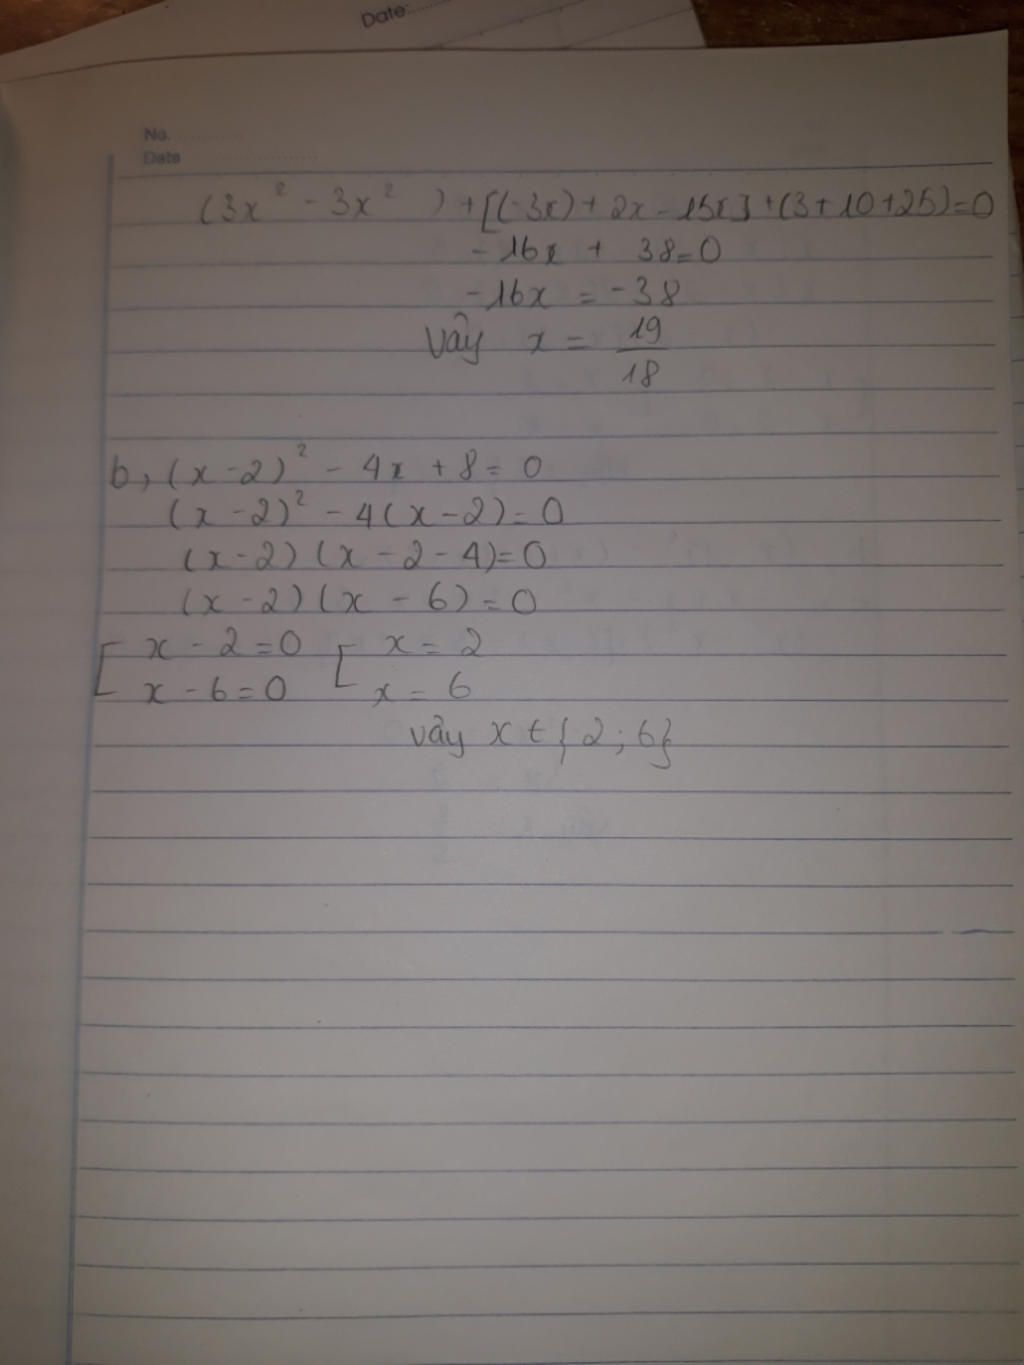 Date:
No.
Date
(3x² - 3x² ) + [(-3x) + 2x - 15x] + (3 + 10 + 25) = 0
- 16x + 38 = 0
- 16x = - 38
Vậy x = 19/18
b, (x - 2)² - 4x + 8 = 0
(x - 2)² - 4(x - 2) = 0
(x - 2) (x - 2 - 4) = 0
(x - 2) (x - 6) = 0
[ x - 2 = 0 [ x = 2
x - 6 = 0 x = 6
vậy x ∈ {2; 6}